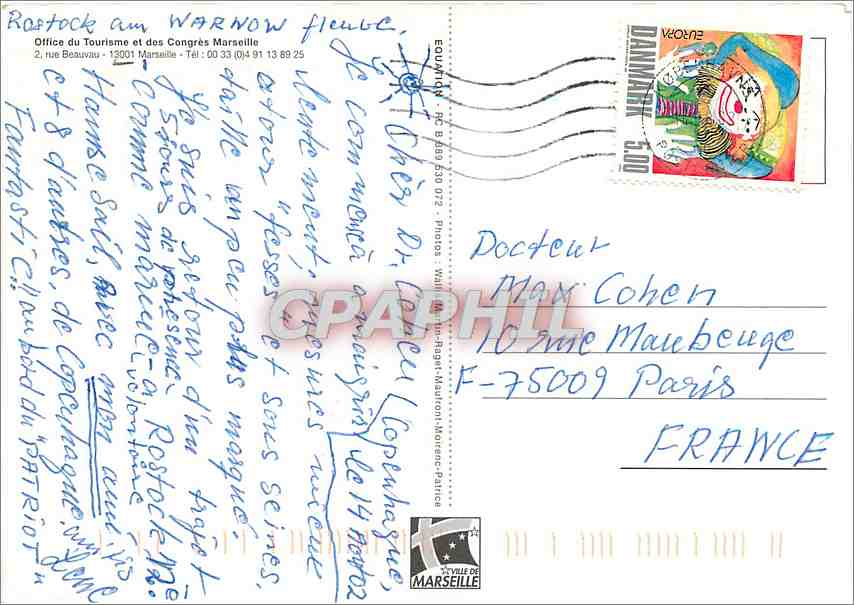 Rostock am WARNOW fleuve.
Office du Tourisme et des Congrès Marseille
2, rue Beauvau - 13001 Marseille - Tél : 00 33 (0)4 91 13 89 25
Copenhague,
le 14 août 02
Cher Dr. Cohen
Je commence à maigrir
lentement, mesures mieux
autour "fesses" et sous seines,
taille un peu plus marqué.
Je suis retour d'un trajet
Séjour de présence à Rostock
comme marine (volontaire
Hanse Sail, avec mon ami,
et 8 d'autres, de Copenhague,
Fantastic!! au bord du "PATRIOT"
EQUATION RC B 389 630 072 - Photos : Wall-Martin-Raget-Maufront-Moirenc-Patrice
EUROPA
DANMARK 5.00
Docteur
Max Cohen
10 rue Maubeuge
F-75009 Paris
FRANCE
CPAPHIL
VILLE DE
MARSEILLE